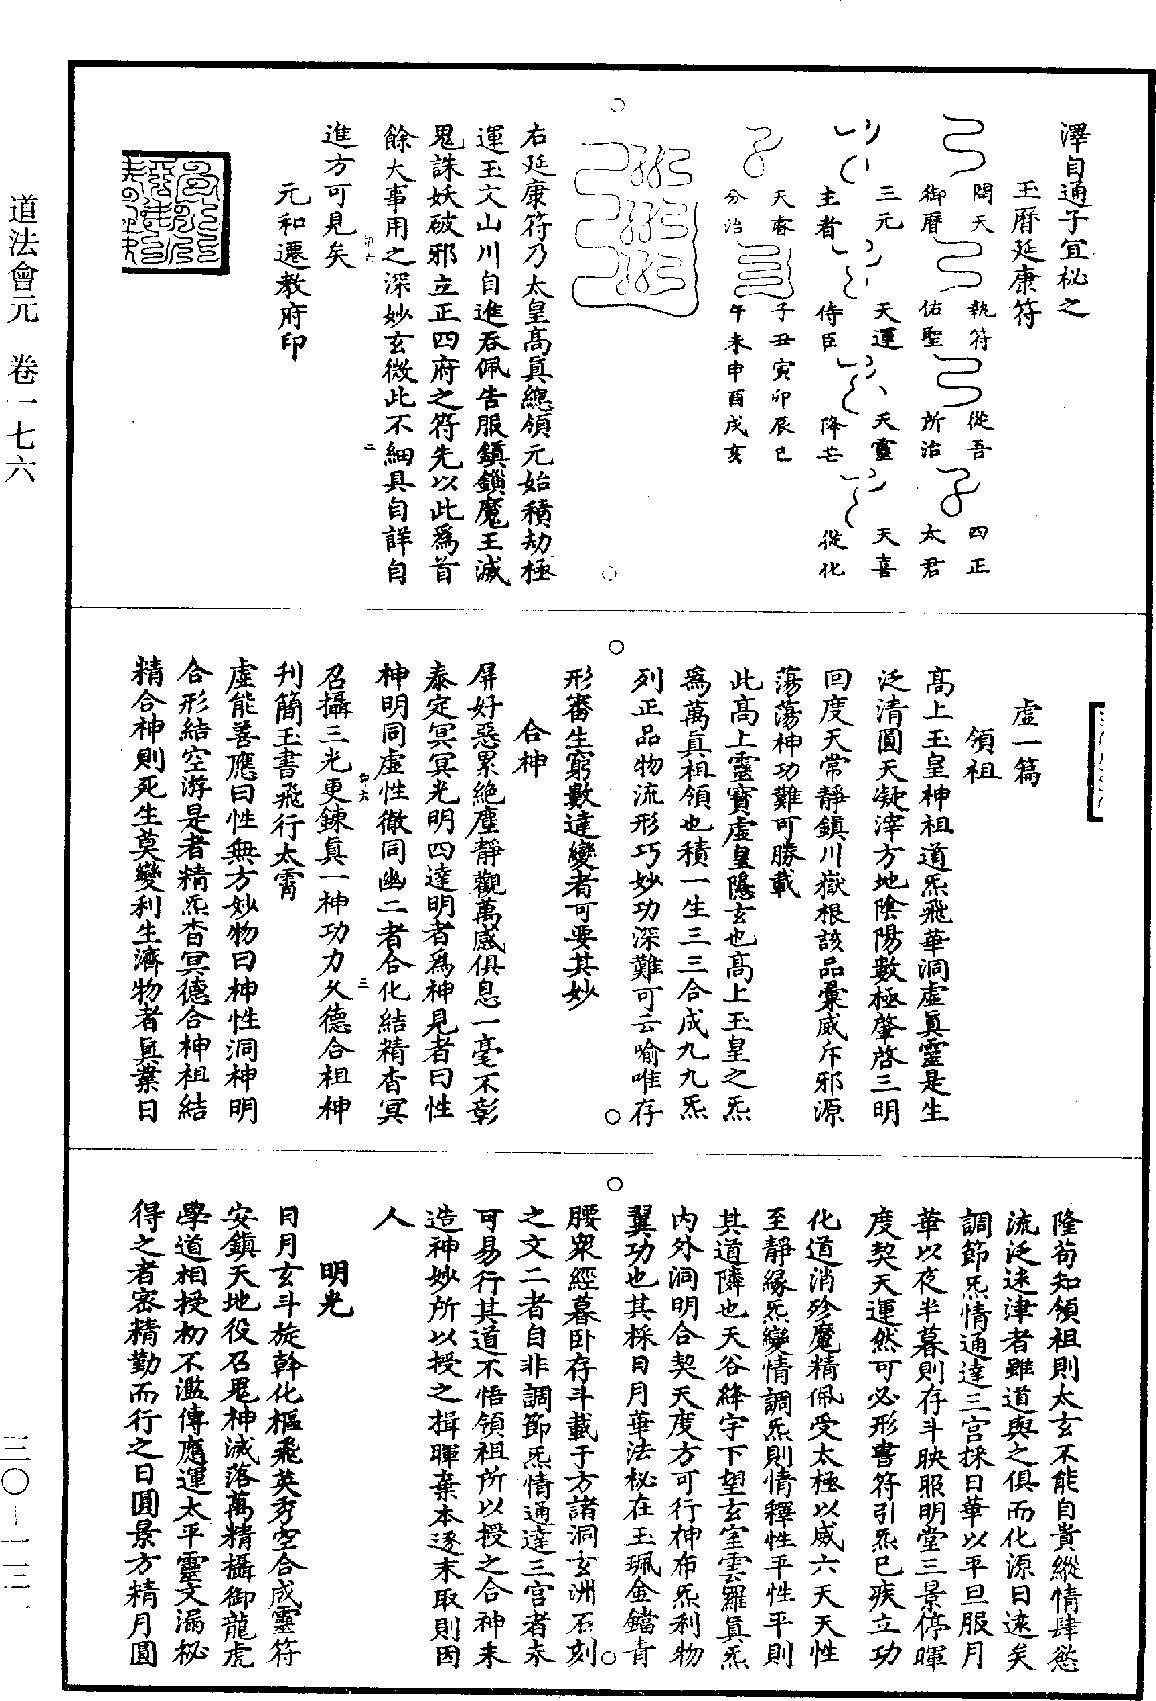 道法會元　卷一七六
澤自通子宜秘之
玉曆延康符
開天　執符　從吾　四正
御曆　佑聖　所治　太君
三元　天運　天靈　天喜
主者　侍臣　降芒　從化
天春　子丑寅卯辰巳
分治　午未申酉戌亥
右延康符乃太皇高眞總領元始積劫極
運玉文山川自進吞佩告服鎮鎖魔王滅
鬼誅妖破邪立正四府之符先以此爲首
餘大事用之深妙玄微此不細具自詳自
進方可見矣
元和遷教府印
虛一篇
領祖
高上玉皇神祖道炁飛華洞虛眞靈是生
泛清圓天凝滓方地陰陽數極肇啓三明
回度天常靜鎮川嶽根該品彙威斥邪源
蕩蕩神功難可勝載
此高上靈寶虛皇隱玄也高上玉皇之炁
爲萬眞祖領也積一生三三合成九九炁
列正品物流形巧妙功深難可云喻唯存
形審生窮數達變者可要其妙
合神
屏好惡累絶塵靜觀萬感俱息一毫不彰
泰定冥冥光明四達明者爲神見者曰性
神明同虛性徹同幽二者合化結精杳冥
召攝三光更鍊眞一神功力久德合祖神
刊簡玉書飛行太霄
虛能善應曰性無方妙物曰神性洞神明
合形結空游是者精炁杳冥德合神祖結
精合神則死生莫變利生濟物者眞葉日
隆苟知領祖則太玄不能自貴縱情肆慾
流泛迷津者雖道與之俱而化源日遠矣
調節炁情通達三宮採日華以平旦服月
華以夜半暮則存斗映服明堂三景停暉
度契天運然可必形書符引炁已疾立功
化道消殄魔精佩受太極以威六天天性
至靜緣炁變情調炁則情釋性平性平則
其道隣也天谷絳宇下望玄室雲羅眞炁
內外洞明合契天度方可行神布炁利物
翼功也其採日月華法秘在玉珮金鐺青
腰衆經暮卧存斗載于方諸洞玄洲石刻
之文二者自非調節炁情通達三宮者未
可易行其道不悟領祖所以授之合神未
造神妙所以授之揖暉棄本逐末取則因
人
明光
日月玄斗旋斡化樞飛英秀空合成靈符
安鎮天地役召鬼神滅落萬精攝御龍虎
學道相授初不濫傳應運太平靈文漏秘
得之者密精勤而行之日圓景方精月圓
三〇—一一三